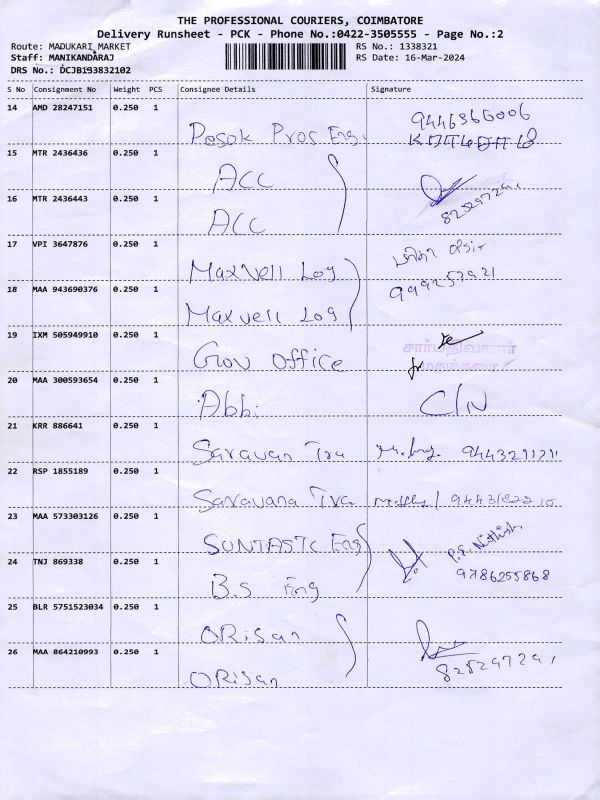 THE PROFESSIONAL COURIERS, COIMBATORE
Delivery Runsheet - PCK - Phone No.:0422-3505555 - Page No.:2
Route: MADUKARI_MARKET
Staff: MANIKANDARAJ
DRS No.: DCJB193832102
RS No.: 1338321
RS Date: 16-Mar-2024
S No Consignment No Weight PCS Consignee Details Signature
14 AMD 28247151 0.250 1
Pros Eng. 9446366006
15 MTR 2436436 0.250 1
ACC
16 MTR 2436443 0.250 1
ACC
17 VPI 3647876 0.250 1
Maxvell Log
18 MAA 943690376 0.250 1
Maxvell Log
19 IXM 505949910 0.250 1
Gov Office
20 MAA 300593654 0.250 1
Abbi C/N
21 KRR 886641 0.250 1
Saravan Tra
22 RSP 1855189 0.250 1
Saravana Tra
23 MAA 573303126 0.250 1
SUNTASTC Eng
24 TNJ 869338 0.250 1
B.S Eng 9786255868
25 BLR 5751523034 0.250 1
ORisan
26 MAA 864210993 0.250 1
ORisan